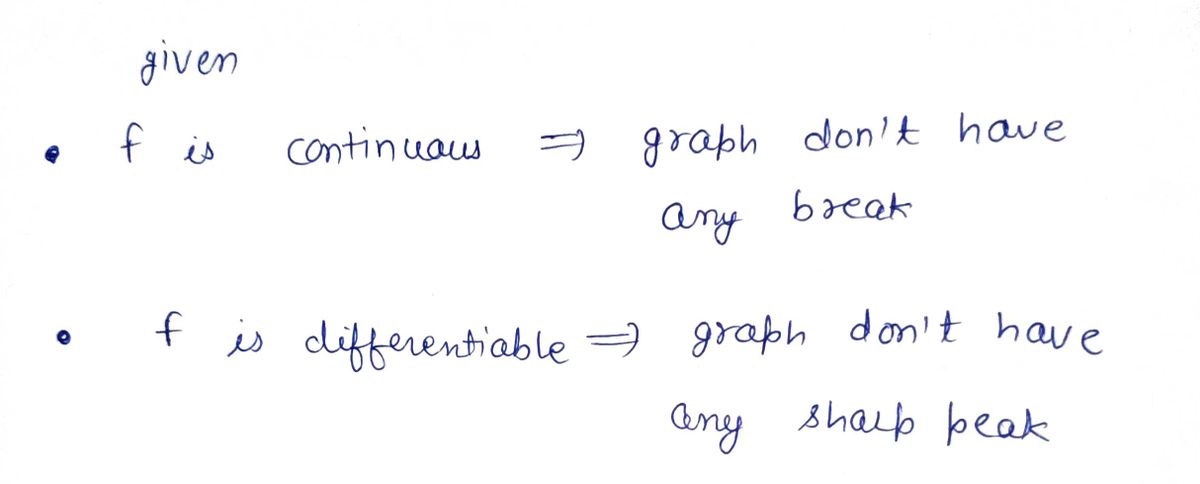 given
• f is continuous ⇒ graph don't have
any break
• f is differentiable ⇒ graph don't have
any sharp peak